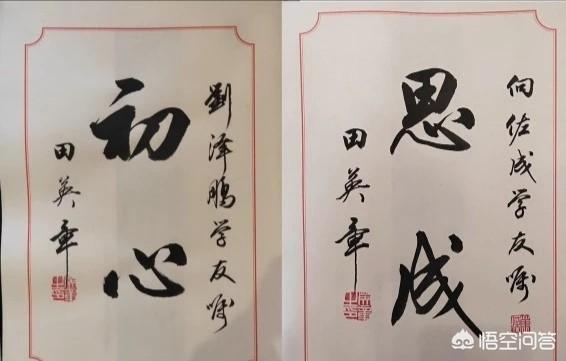 劉泽鹏学友嘱
初心
田英章
向佐成学友嘱
思成
田英章
悟空问答